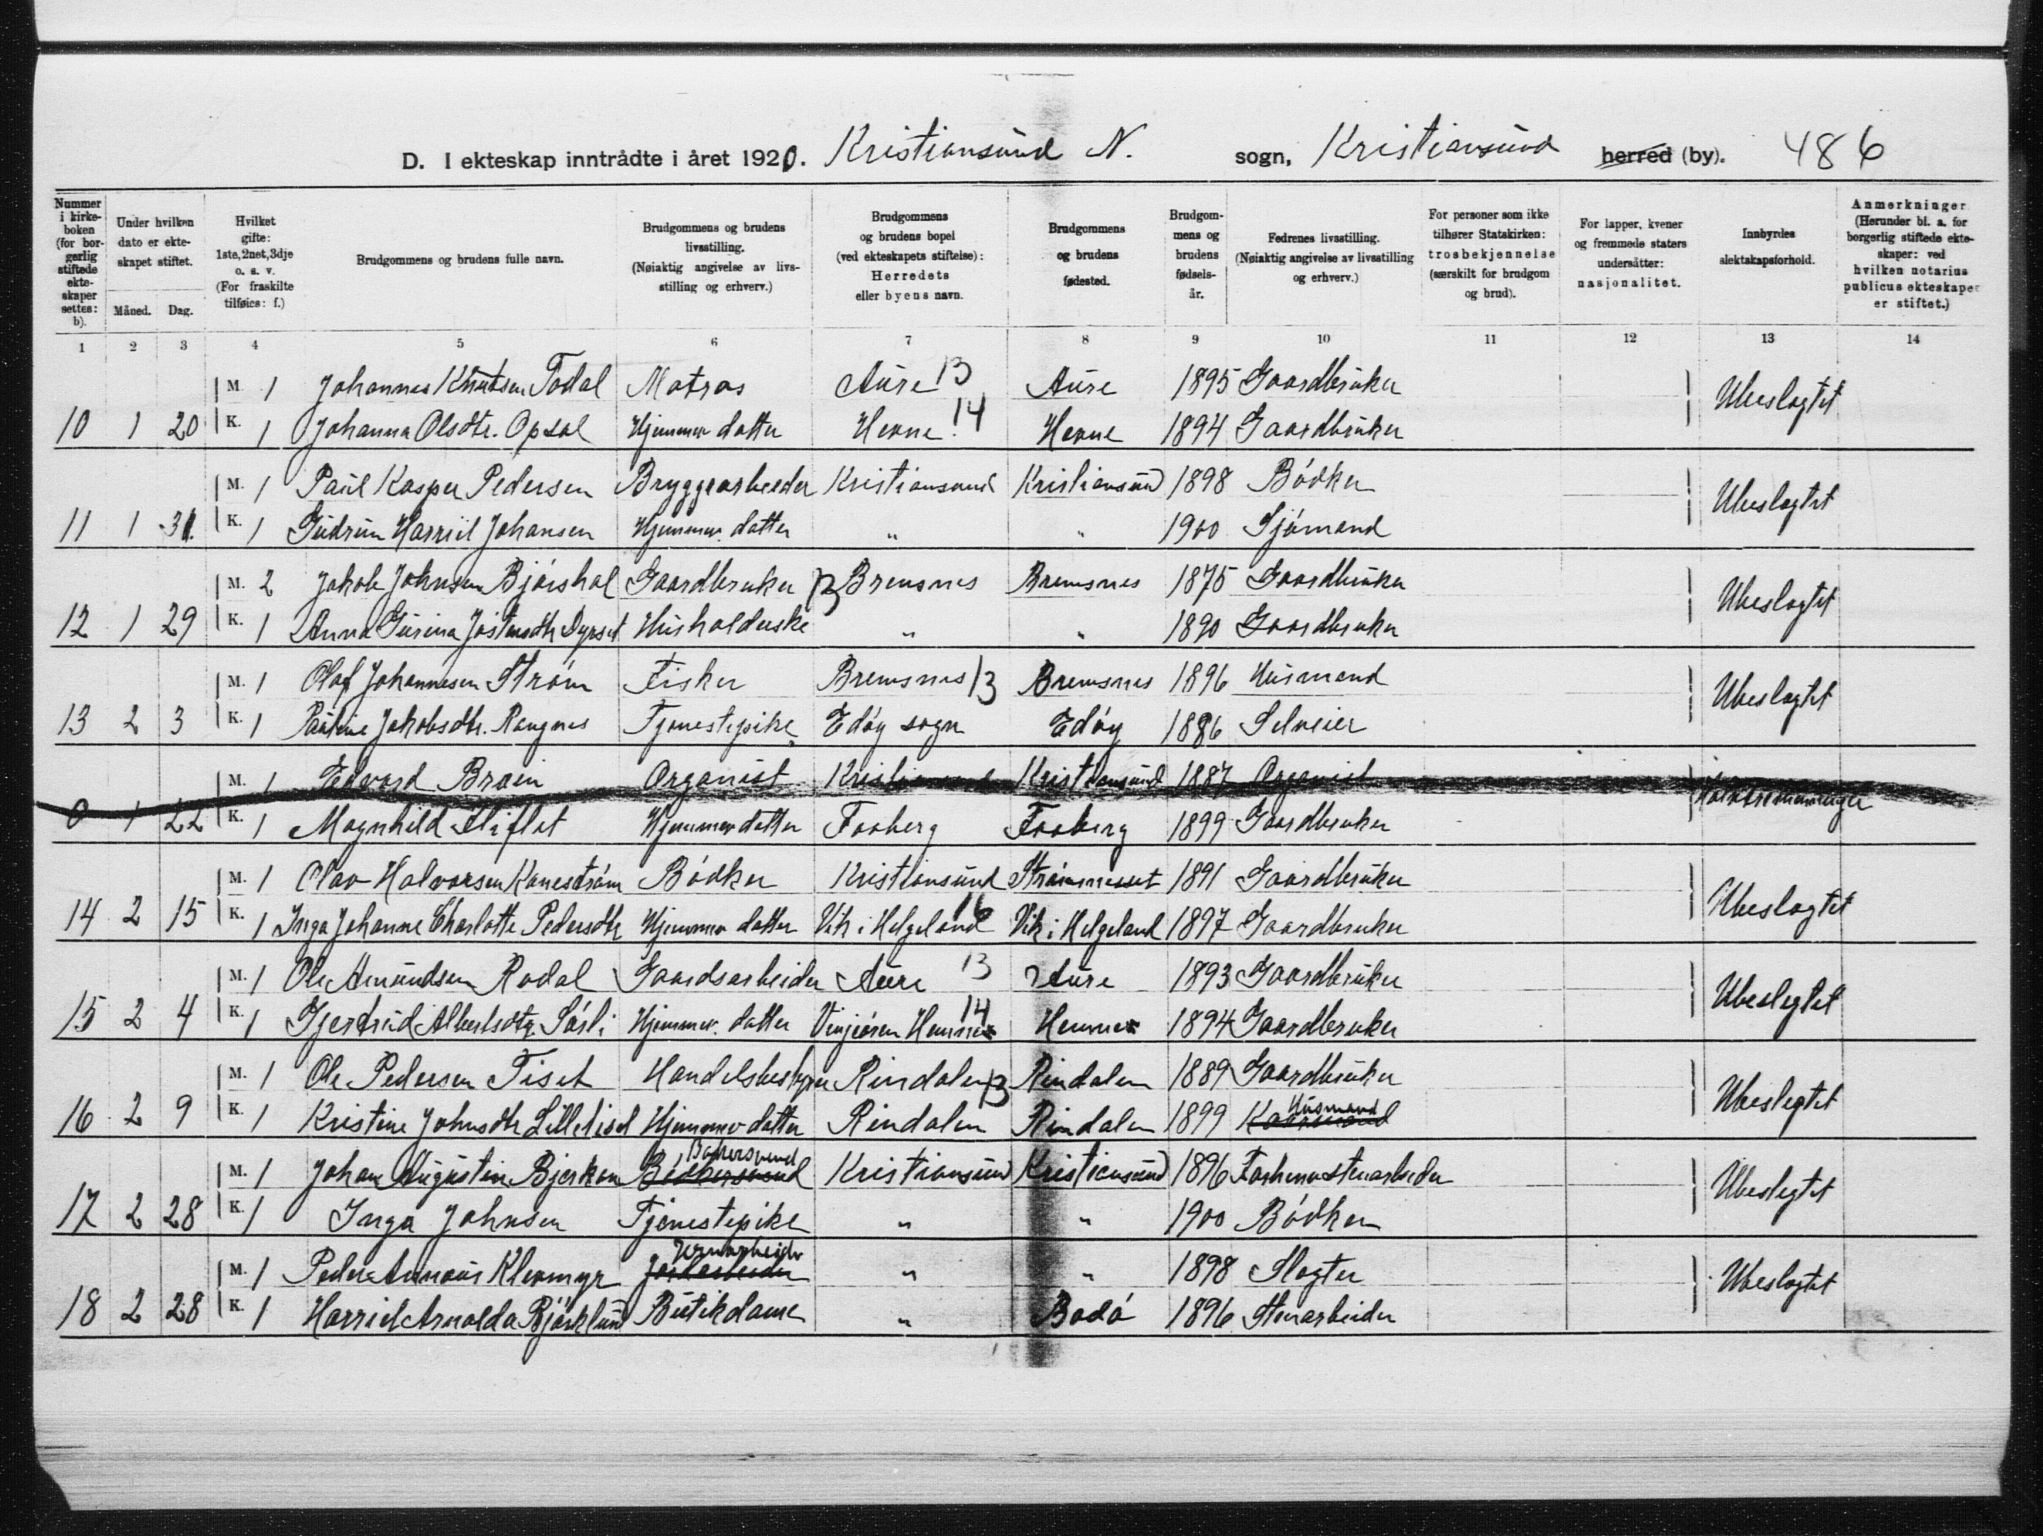 D. I ekteskap inntrådte i året 1920. Kristiansund N. sogn, Kristiansund herred (by). 486
Nummer i kirkeboken (for borgerlig stiftede ekteskaper settes: b).
Under hvilken dato er ekteskapet stiftet.
Måned. Dag.
Hvilket gifte: 1ste, 2net, 3dje o. s. v. (For fraskilte tilføies: f.)
Brudgommens og brudens fulle navn.
Brudgommens og brudens livsstilling. (Nøiaktig angivelse av livsstilling og erhverv.)
Brudgommens og brudens bopel (ved ekteskapets stiftelse): Herredets eller byens navn.
Brudgommens og brudens fødested.
Brudgommens og brudens fødselsår.
Fedrenes livsstilling. (Nøiaktig angivelse av livsstilling og erhverv.)
For personer som ikke tilhører Statskirken: trosbekjennelse (særskilt for brudgom og brud).
For lapper, kvener og fremmede staters undersåtter: nasjonalitet.
Innbyrdes slektskapsforhold.
Anmerkninger (Herunder bl. a. for borgerlig stiftede ekteskaper: ved hvilken notarius publicus ekteskapet er stiftet.)
1 2 3 4 5 6 7 8 9 10 11 12 13 14
M. 1 Johannes Knutsen Todal Matros Aure 13 Aure 1895 Gaardbruker Ubeslagtet
10 1 20 K. 1 Johanna Olsdtr. Opsal Hjemmev datter Hevne 14 Hevne 1894 Gaardbruker
M. 1 Paul Kasper Pedersen Bryggearbeider Kristiansund Kristiansund 1898 Bödker Ubeslagtet
11 1 31. K. 1 Gudrun Harriet Johansen Hjemmev. datter " " 1900 Sjömand
M. 2 Jakob Johnsen Bjórshol Gaardbruker 13 Bremsnes Bremsnes 1875 Gaardbruker Ubeslagtet
12 1 29 K. 1 Anna Gurina Jostensdtr Dyrset Husholderske " " 1890 Gaardbruker
M. 1 Olaf Johannesen Ström Fisker Bremsnes 13 Bremsnes 1896 Husmand Ubeslagtet
13 2 3 K. 1 Pauline Jakobsdtr. Rangnes Tjenestepike Edöy sogn Edöy 1886 Selveier
M. 1 Edvard Bræin Organist Kristiansund Kristiansund 1887 Organist
0 1 22 K. 1 Magnhild Fliflet Hjemmev datter Faaberg Faaberg 1899 Gaardbruker
M. 1 Olav Halvorsen Kaneström Bödker Kristiansund Strömsneset 1891 Gaardbruker Ubeslagtet
14 2 15 K. 1 Inga Johanne Charlotte Pedersdtr Hjemmev datter Vik i Helgeland 16 Vik i Helgeland 1897 Gaardbruker
M. 1 Ole Amundsen Rodal Gaardsarbeider Aure 13 Aure 1893 Gaardbruker Ubeslegtet
15 2 4 K. 1 Gjertrud Albertsdtr Sørli Hjemmev. datter Vinjeören Hemne 14 Hemne 1894 Gaardbruker
M. 1 Ole Pedersen Tiset Handelsbestyrer Rindalen 13 Rindalen 1889 Gaardbruker Ubeslegtet
16 2 9 K. 1 Kristine Johnsdtr Lilletiset Hjemmev datter Rindalen Rindalen 1899 Husmand
M. 1 Johan Augustin Bjerkan Bakersvend Kristiansund Kristiansund 1896 Forhenv stenarbeider Ubeslegtet
17 2 28 K. 1 Inga Johnsen Tjenestepike " " 1900 Bödker
M. 1 Peder Arnous Klevmyr Jernarbeider " " 1898 Slagter Ubeslagtet
18 2 28 K. 1 Harriet Arnolda Björklund Butikdame " Bodö 1896 Stenarbeider